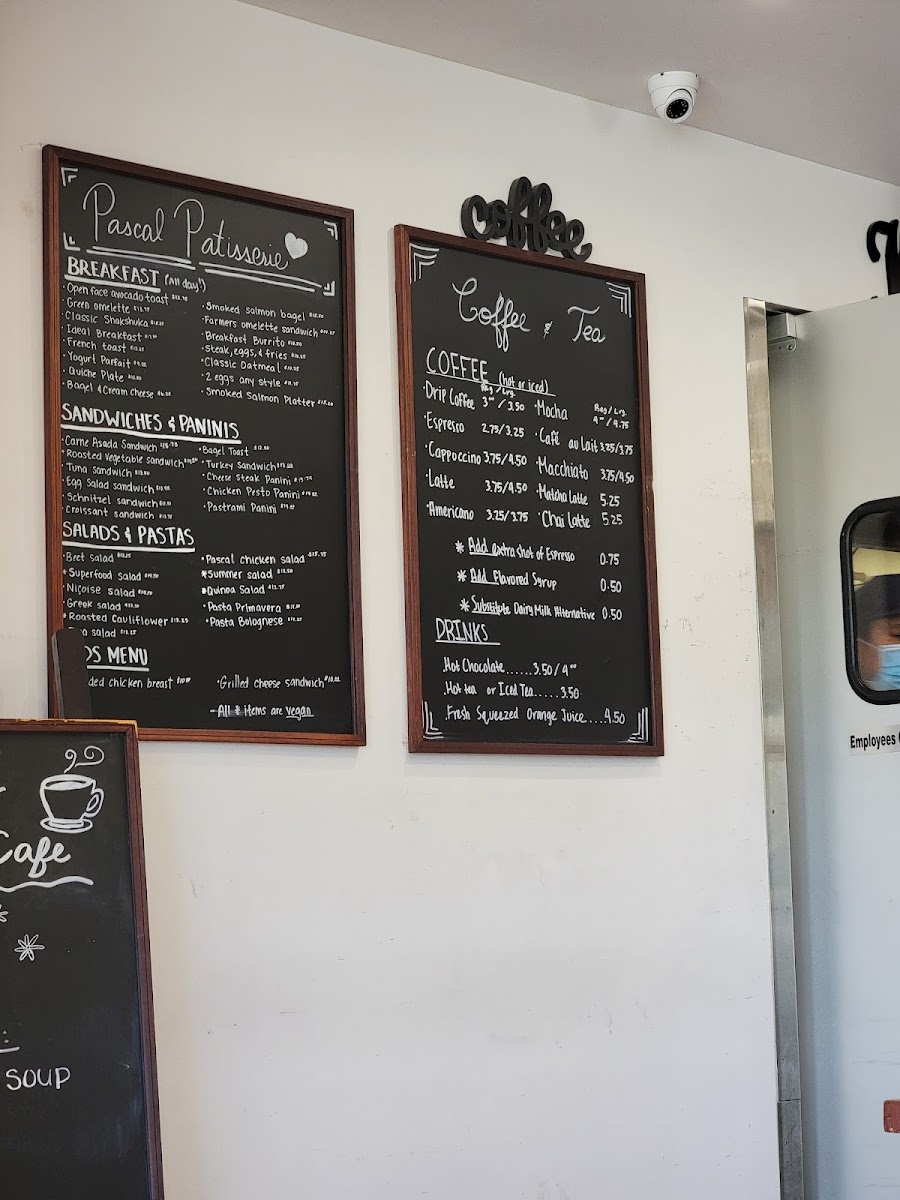 Pascal Patisserie
BREAKFAST (All day!)
·Open face avocado toast
·Green omelette
·Classic Shakshuka
·Ideal Breakfast
·French toast
·Yogurt Parfait
·Quiche Plate
·Bagel & Cream Cheese
·Smoked salmon bagel
·Farmers omelette sandwich
·Breakfast Burrito
·Steak, eggs, & fries
·Classic Oatmeal
·2 eggs any style
·Smoked Salmon Platter
SANDWICHES & PANINIS
·Carne Asada Sandwich
·Roasted Vegetable sandwich
·Tuna sandwich
·Egg Salad sandwich
·Schnitzel sandwich
·Croissant sandwich
·Bagel Toast
·Turkey Sandwich
·Cheese Steak Panini
·Chicken Pesto Panini
·Pastrami Panini
SALADS & PASTAS
·Beet salad
*Superfood salad
·Niçoise salad
·Greek salad
*Roasted Cauliflower
salad
·Pascal chicken salad
*Summer salad
*Quinoa Salad
·Pasta Primavera
·Pasta Bolognese
DS MENU
ded chicken breast
·Grilled cheese sandwich
-All * Items are vegan
coffee
Coffee & Tea
COFFEE (hot or iced)
Reg / Lrg.
·Drip Coffee 3.00 / 3.50
·Espresso 2.75/3.25
·Cappuccino 3.75/4.50
·Latte 3.75/4.50
·Americano 3.25/3.75
Reg / Lrg.
·Mocha 4.00 / 4.75
·Café au Lait 3.25/3.75
·Macchiato 3.75/4.50
·Matcha Latte 5.25
·Chai Latte 5.25
* Add extra shot of Espresso 0.75
* Add Flavored Syrup 0.50
* Substitute Dairy Milk Alternative 0.50
DRINKS
.Hot Chocolate......3.50 / 4.00
.Hot tea or Iced Tea.....3.50
.Fresh Squeezed Orange Juice....4.50
Cafe
SOUP
Employees